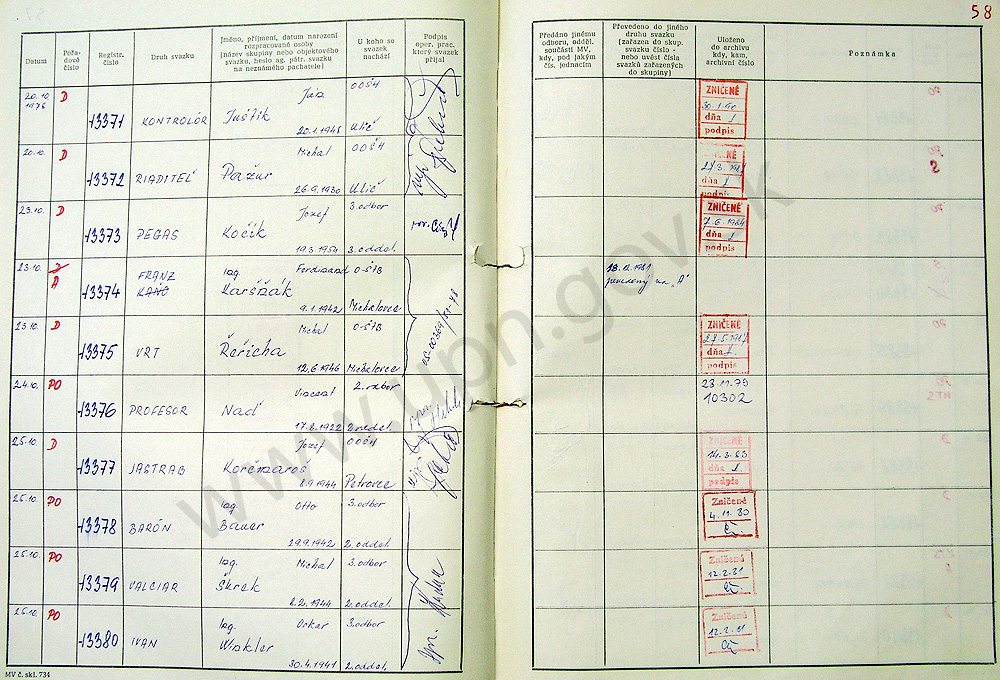 58
Datum
Pořadové číslo
Registr. číslo
Druh svazku
Jméno, příjmení, datum narození rozpracované osoby
(název skupiny nebo objektového svazku, heslo ag. pátr. svazku na neznámého pachatele)
U koho se svazek nachází
Podpis oper. prac. který svazek přijal
Předáno jinému odboru, odděl. součásti MV, kdy, pod jakým čís. jednacím
Převedeno do jiného druhu svazku (zařazen do skup. svazku číslo - nebo uvést čísla svazků zařazených do skupiny)
Uloženo do archivu kdy, kam, archivní číslo
Poznámka
20.10. 1978 D 13371 KONTROLÓR Ján Juštík 20.1.1948 OOŠH Ulič
ZNIČENÉ
dňa
podpis
20.10. D 13372 RIADITEĽ Michal Pažur 26.9.1930 OOŠH Ulič
dňa
podpis
S
23.10. D 13373 PEGAS Jozef Kočík 19.3.1954 3.odbor 3.oddel.
ZNIČENÉ
7.6.1984
dňa
podpis
23.10. A 13374 FRANZ KAŇO Ing. Ferdinand Karšňák 9.1.1942 O-ŠTB Michalovce
18.12.1981
prevedený na "A"
23.10. D 13375 VRT Michal Řeřicha 12.6.1946 O-ŠTB Michalovce
ZNIČENÉ
dňa
podpis
24.10. PO 13376 PROFESOR Vincent Naď 17.8.1922 2.odbor
23.11.79
10302
25.10. D 13377 JASTRAB Jozef Korčmaroš 8.9.1944 OOŠH Petrovce
ZNIČENÉ
14.3.83
dňa
podpis
25.10. PO 13378 BARÓN Ing. Otto Bauer 29.9.1942 3.odbor 2.oddel.
Zničené
4.11.80
25.10. PO 13379 VALCIAR Ing. Michal Škrek 8.2.1944 3.odbor 2.oddel.
Zničené
12.2.81
25.10. PO 13380 IVAN Ing. Oskar Winkler 30.4.1941 3.odbor 2.oddel.
Zničené
12.2.81
MV č. skl. 734
www.upn.gov.sk